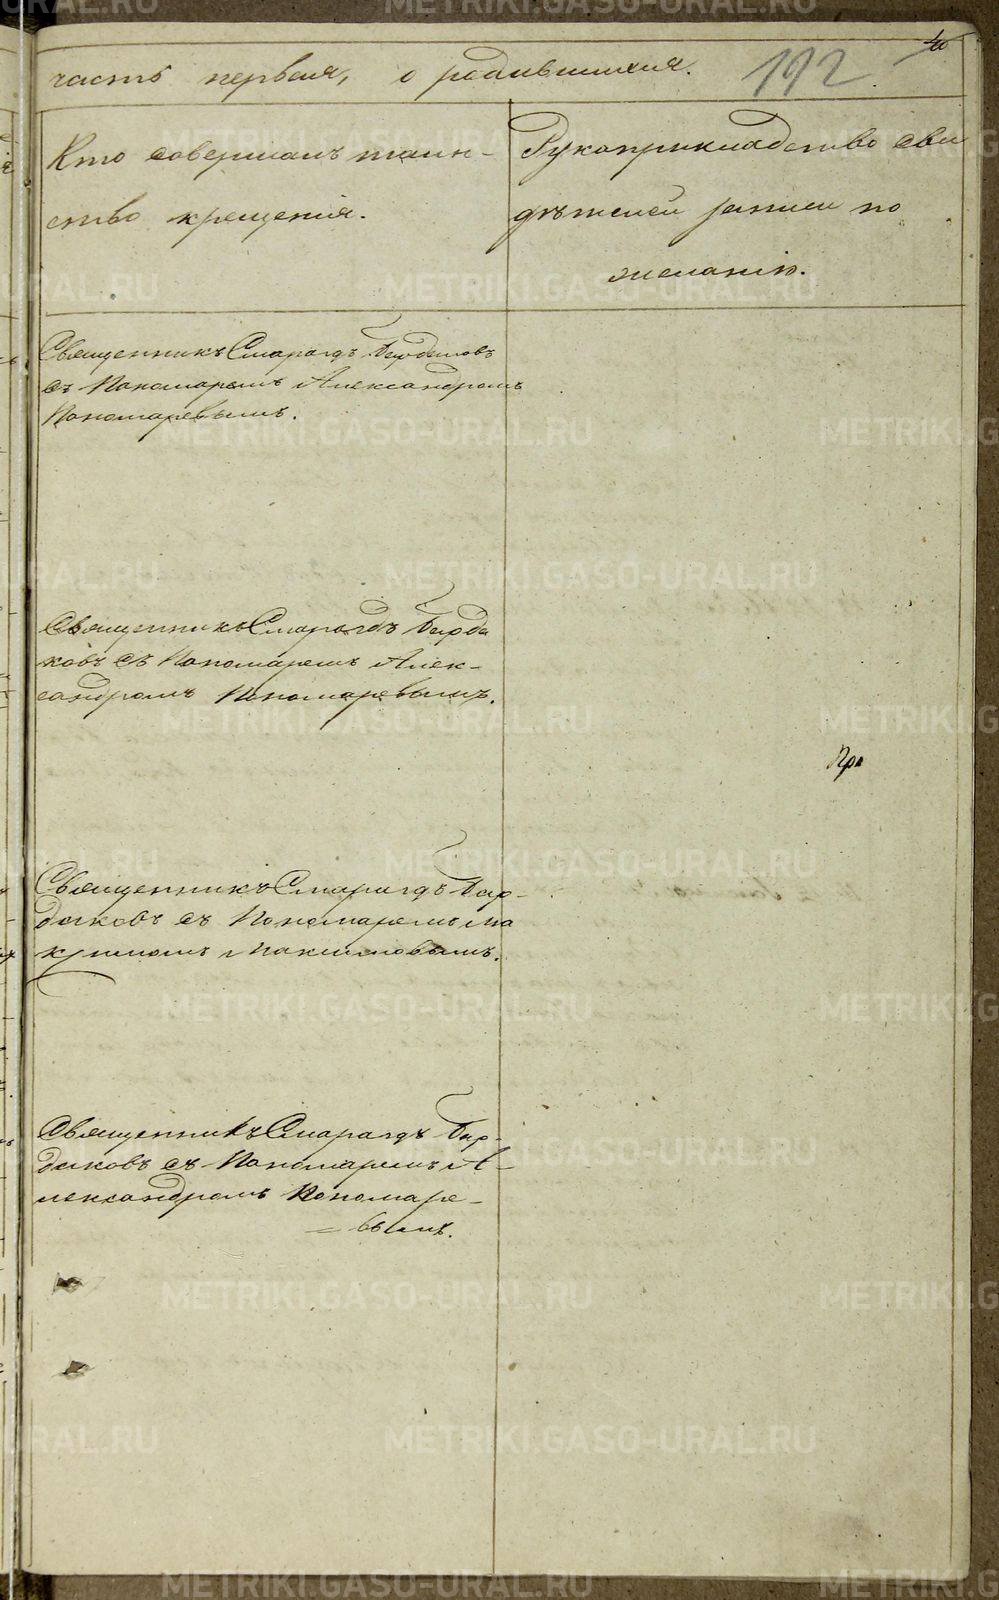 часть первая, о родившихся. 192
40
Кто совершалъ таин-
ство крещенія.
Рукоприкладство сви
дѣтелей записи по
желанію.
Священникъ Смарагдъ Бирдюковъ
съ Пономаремъ Александромъ
Пономаревымъ.
Священникъ Смарагдъ
ковъ съ Пономаремъ Алек-
сандромъ Пономаревымъ.
Пр
Священникъ Смарагдъ
съ Пономаремъ
Максимовымъ.
Священникъ Смарагдъ
съ Пономаремъ А-
лександромъ Пономаре-
= вымъ.
METRIKI.GASO-URAL.RU